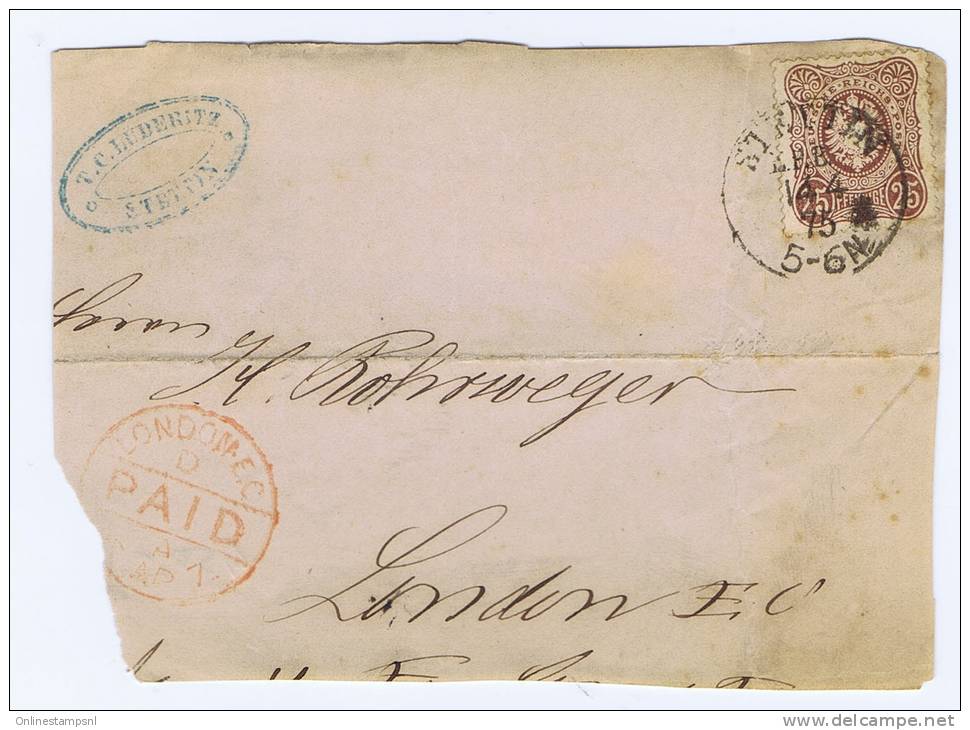 T.C. LÜDERITZ
STETTIN
DEUTSCHE·REICHS-POST
25 PFENNIGE 25
STETTIN
75
5-6N
Herrn
H. Rohrweger
LONDON·E.C
D
PAID
AP 7
London E C
Onlinestampsnl
www.delcampe.net